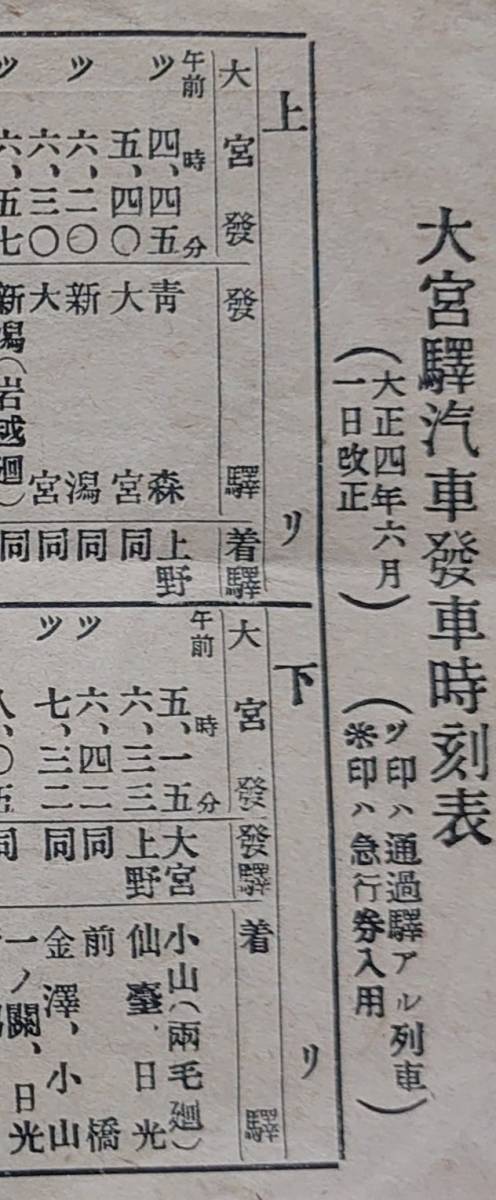 大宮驛汽車發車時刻表
(大正四年六月
一日改正)
(ツ印ハ通過驛アル列車
※印ハ急行券入用)
上リ
大宮發 發驛 着驛
午前 時 分
ツ 四、四五 青森 上野
五、四〇 大宮 同
ツ 六、二〇 新潟 同
六、三〇 大宮 同
ツ 六、五七 新潟(岩越廻) 同
下リ
大宮發 發驛 着驛
午前 時 分
五、一五 大宮 小山(兩毛廻)
六、三三 上野 仙臺、日光
ツ 六、四二 同 前橋
ツ 七、三二 同 金澤、小山
八、〇五 同 一ノ關、日光